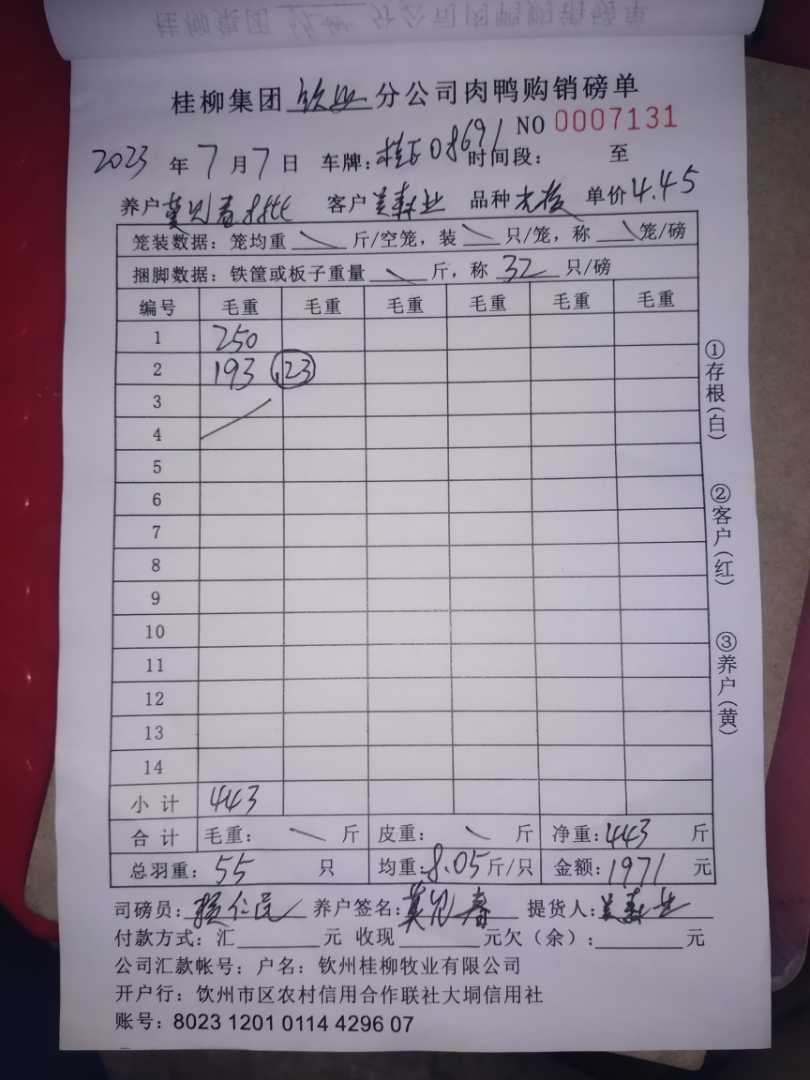 桂柳集团 钦州 分公司肉鸭购销磅单
NO 0007131
2023 年 7 月 7 日 车牌: 桂E08691 时间段: 至
养户 客户 品种 单价 4.45
笼装数据: 笼均重 斤/空笼, 装 只/笼, 称 笼/磅
捆脚数据: 铁筐或板子重量 斤, 称 32 只/磅
编号 毛重 毛重 毛重 毛重 毛重 毛重
1 250
2 193 23
3
4
5
6
7
8
9
10
11
12
13
14
小计 443
合计 毛重: 斤 皮重: 斤 净重: 443 斤
总羽重: 55 只 均重: 8.05 斤/只 金额: 1971 元
司磅员: 养户签名: 提货人:
付款方式: 汇 元 收现 元欠(余): 元
公司汇款帐号: 户名: 钦州桂柳牧业有限公司
开户行: 钦州市区农村信用合作联社大垌信用社
账号: 8023 1201 0114 4296 07
①存根(白)
②客户(红)
③养户(黄)